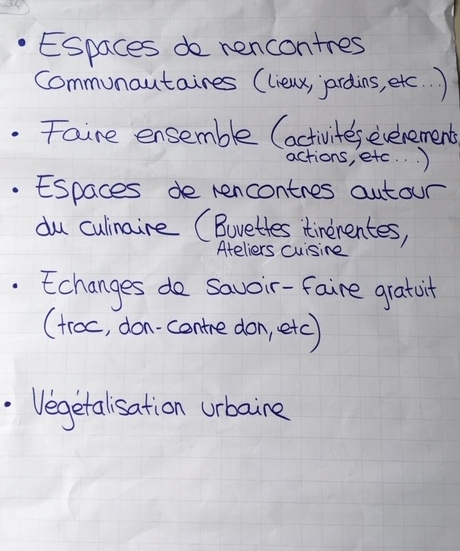 • Espaces de rencontres
communautaires (lieux, jardins, etc...)
• Faire ensemble (activités, événements,
actions, etc...)
• Espaces de rencontres autour
du culinaire (Buvettes itinérentes,
Ateliers cuisine
• Echanges de savoir-faire gratuit
(troc, don-contre don, etc)
• Végétalisation urbaine